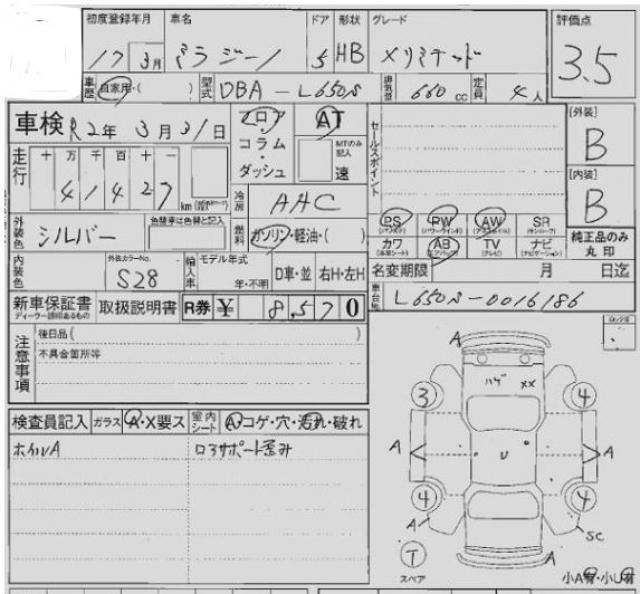 初度登録年月 車名 ドア 形状 グレード 評価点
17 3月 ミラジーノ 5 HB メリミテッド 3.5
車歴 自家用・( ) 型式 DBA-L650S 排気量 660 cc 定員 4人
車検 R2年 3月31日 フロア・コラム・ダッシュ AT MTのみ記入 速 セールスポイント [外装] B
走行 十 万 千 百 十 一 [内装] B
4 1 4 2 7 km 冷房 AAC
外装色 シルバー 色替車は色替と記入 燃料 ガソリン・軽油・( ) PS PW AW SR 純正品のみ丸印
カワ AB TV ナビ
内装色 外装カラーNo. S28 輸入車 モデル年式 年・不明 D車・並 右H・左H 名変期限 月 日迄
新車保証書 取扱説明書 R券 ¥ 8,570 車台No. L650S-0016186
ディーラー捺印あるもの
注意事項 後日品( )
不具合箇所等
検査員記入 ガラス A・X要ス 室内シート A・コゲ・穴・汚れ・破れ
ホイルA ロアサポート歪み
A
ハゲ XX
3 4
A U A
4 4
A SC
T A
スペア 小A有・小U有